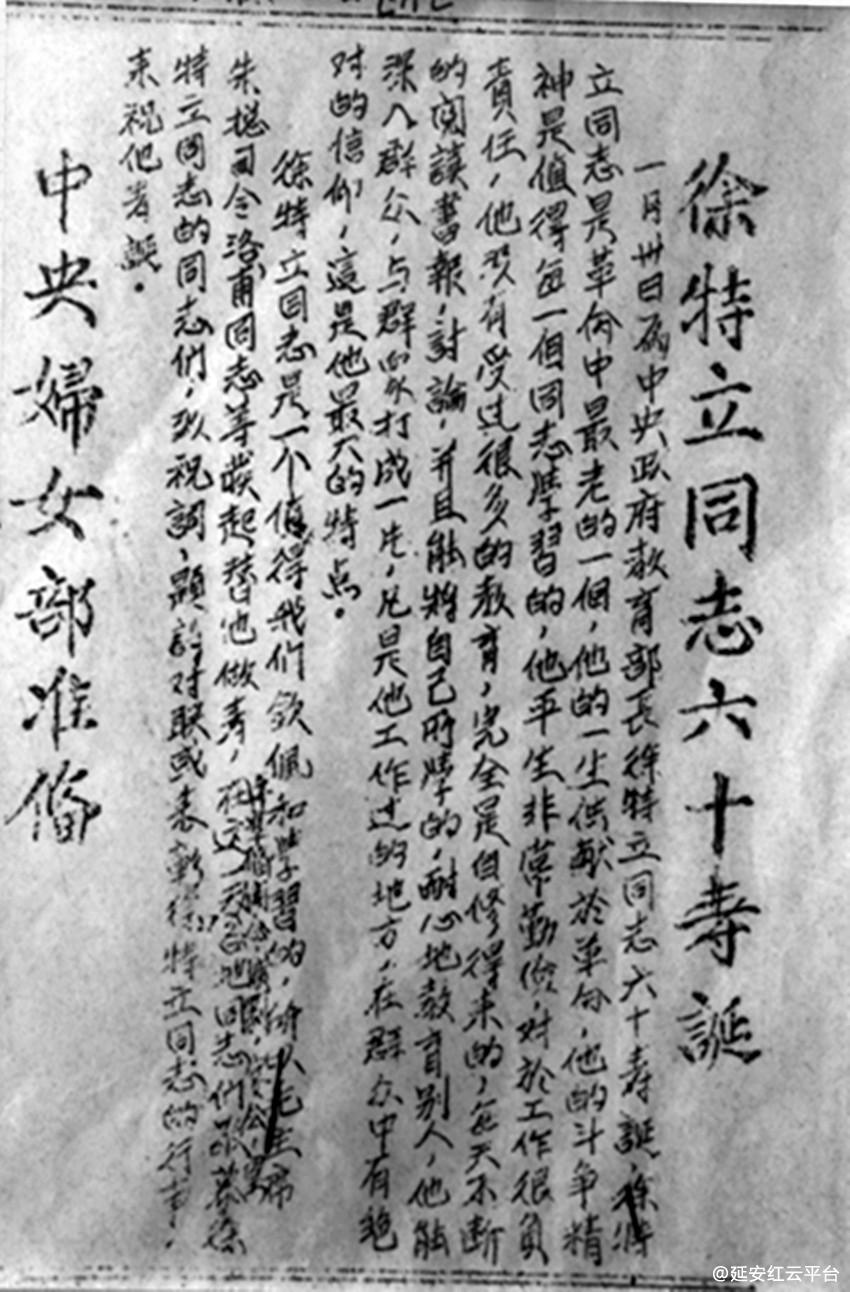 徐特立同志六十寿誕
一月卅日为中央政府教育部長徐特立同志六十寿誕，徐特
立同志是革命中最老的一個，他的一生供献於革命，他的斗争精
神是值得每一個同志學習的，他平生非常勤儉，对於工作很負
責任，他没有受过很多的教育，完全是自修得来的，每天不断
的閱讀書報，討論，并且能将自己所學的，耐心地教育别人，他能
深入群众，与群众打成一片，凡是他工作过的地方，在群众中有絶
对的信仰，這是他最大的特点。
徐特立同志是一个值得我們欽佩和學習的，所以毛主席
朱總司令洛甫同志等發起替他做寿，在这一天各地同志們
特立同志的同志們，致祝詞，題詩对联或表彰徐特立同志的行事，
来祝他寿誕。
中央婦女部准備
@延安红云平台